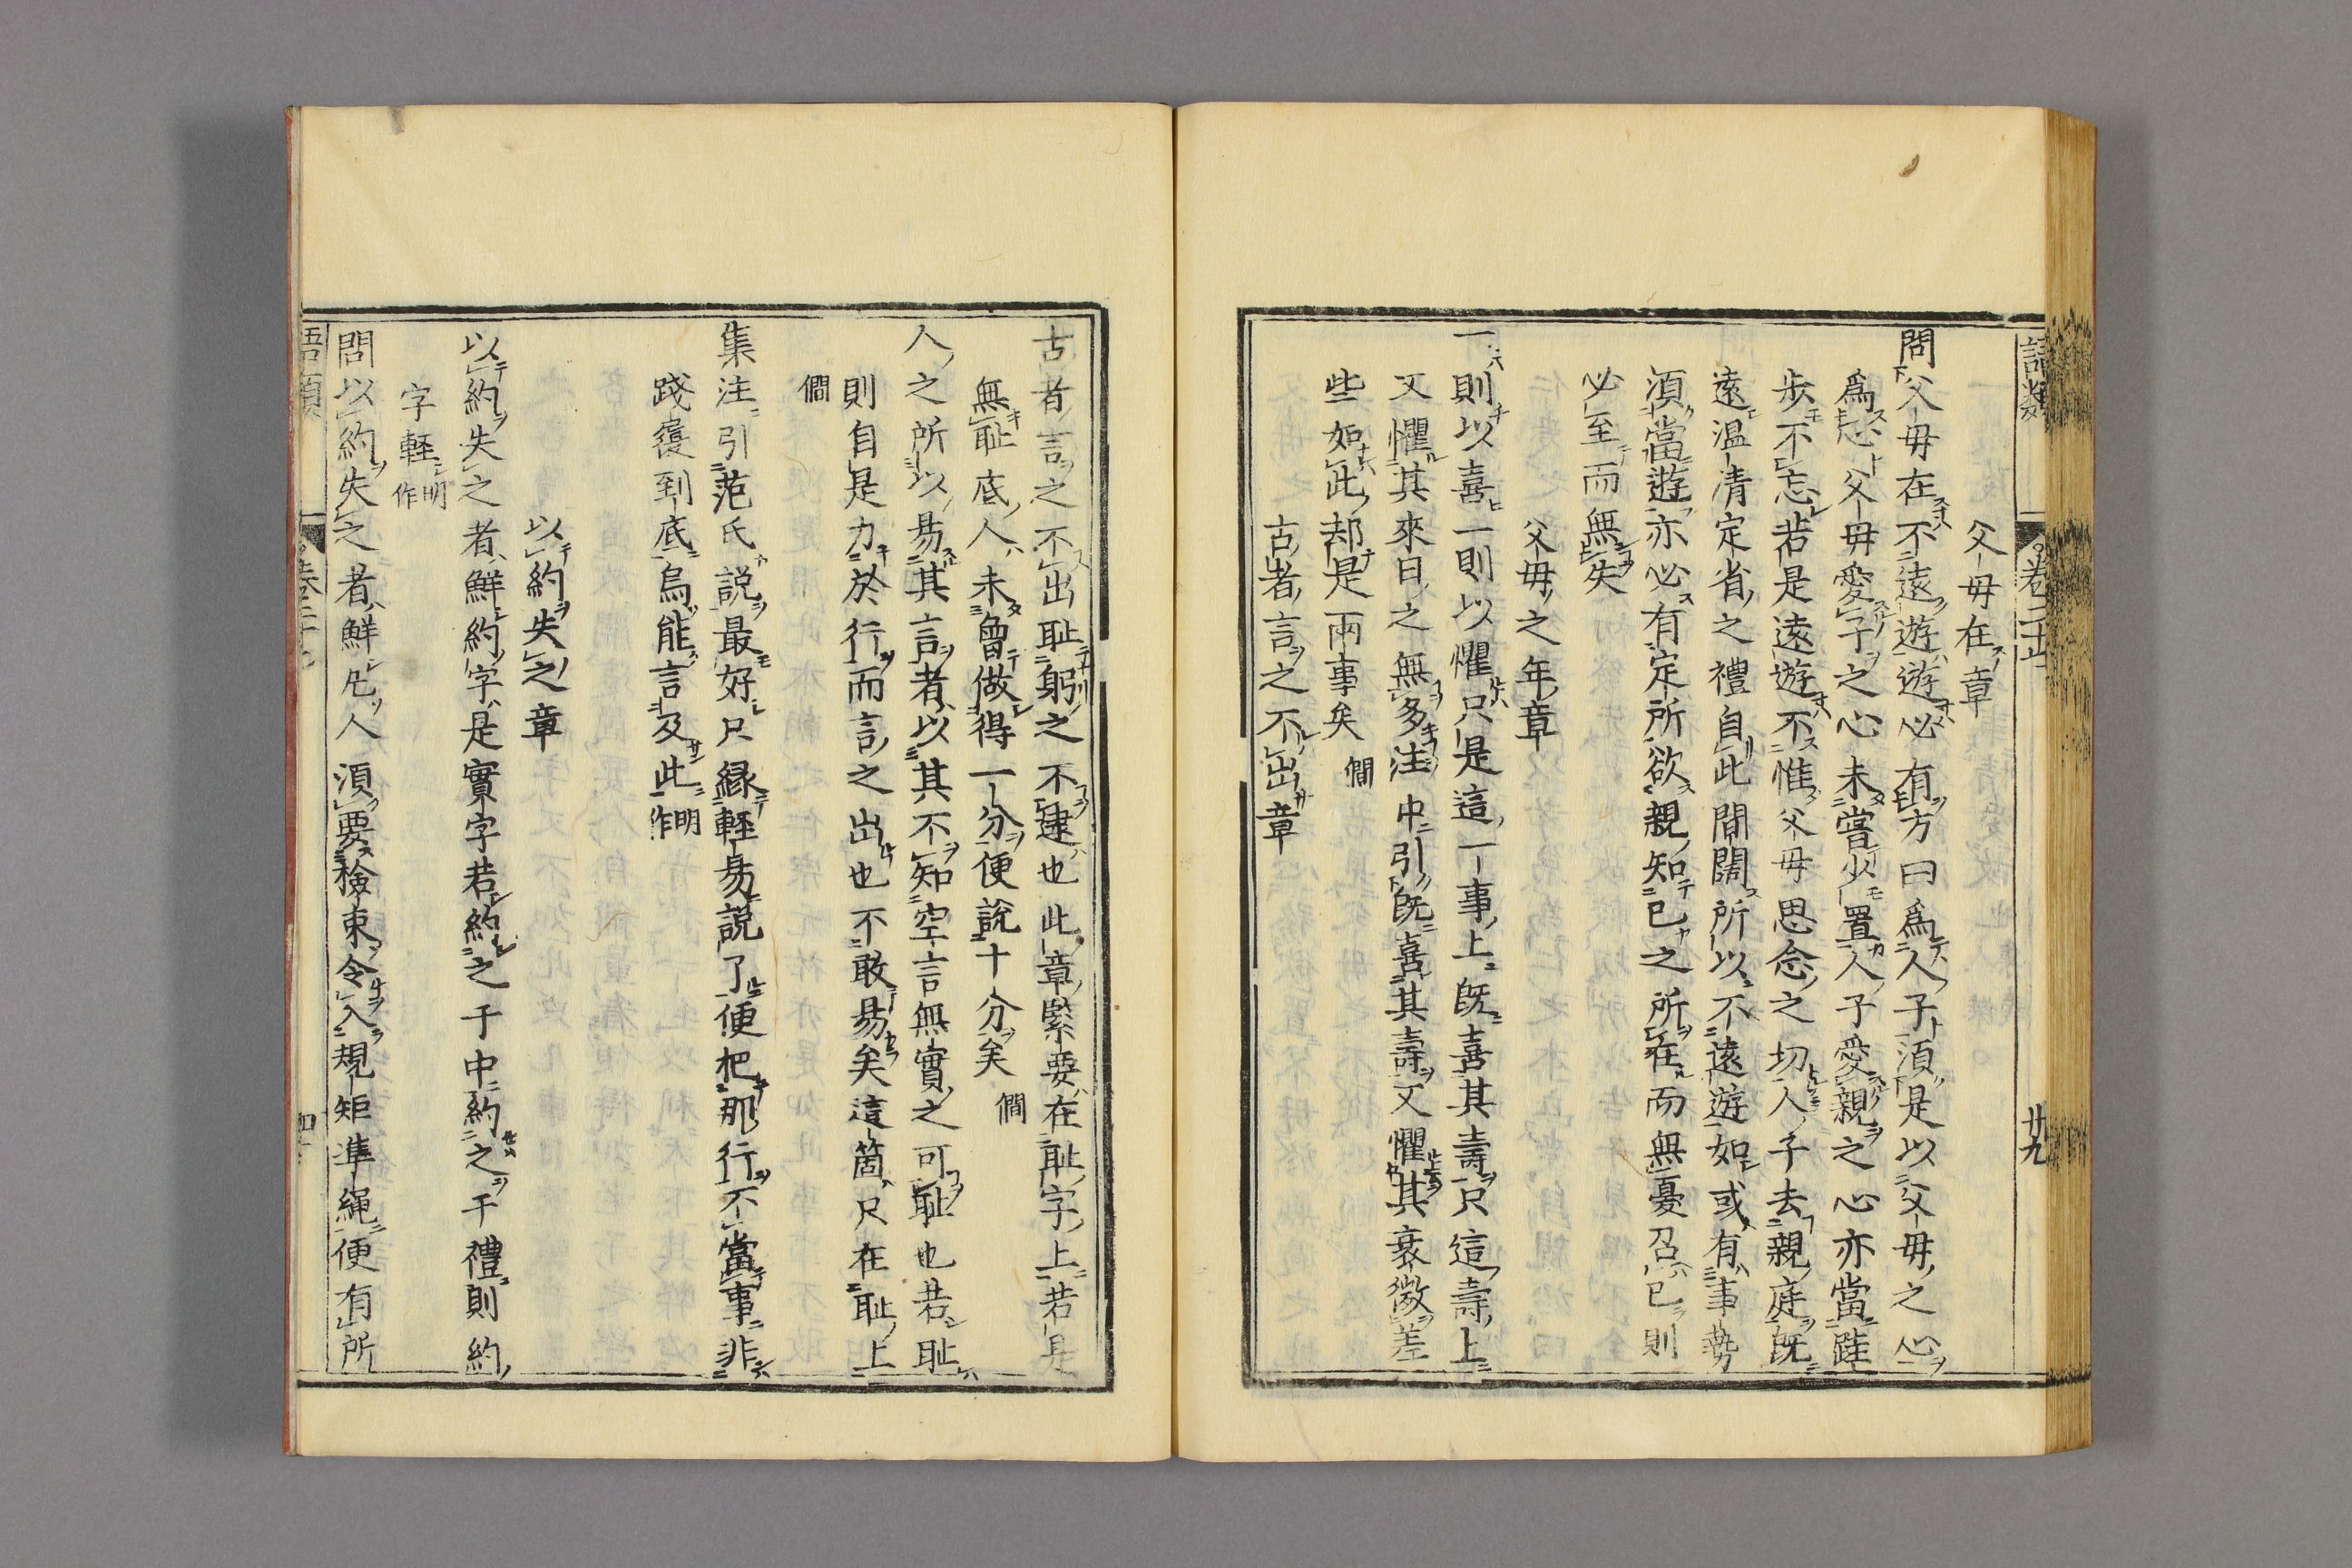 語類
卷二十七
廿九
父母在章
問父母在不遠遊遊必有方曰爲人子須是以父母之心
爲心父母愛子之心未嘗少置人子愛親之心亦當跬
步不忘若是遠遊不惟父母思念之切人子去親庭既
遠溫凊定省之禮自此間闊所以不遠遊如或有事勢
須當遊亦必有定所欲親知已之所在而無憂召已則
必至而無失
父母之年章
一則以喜一則以懼只是這一事上既喜其壽只這壽上
又懼其來日之無多注中引既喜其壽又懼其衰微差
些如此却是兩事矣 僩
古者言之不出章
古者言之不出恥躬之不逮也此章緊要在恥字上若是
無恥底人未曾做得一分便說十分矣 僩
人之所以易其言者以其不知空言無實之可恥也若恥
則自是力於行而言之出也不敢易矣這箇只在恥上
僩
集注引范氏說最好只緣輕易說了便把那行不當事非
踐履到底烏能言及此 明作
以約失之章
以約失之者鮮約字是實字若約之于中約之于禮則約
字輕 明作
問以約失之者鮮凡人須要檢束令入規矩準繩便有所
語類
卷二十七